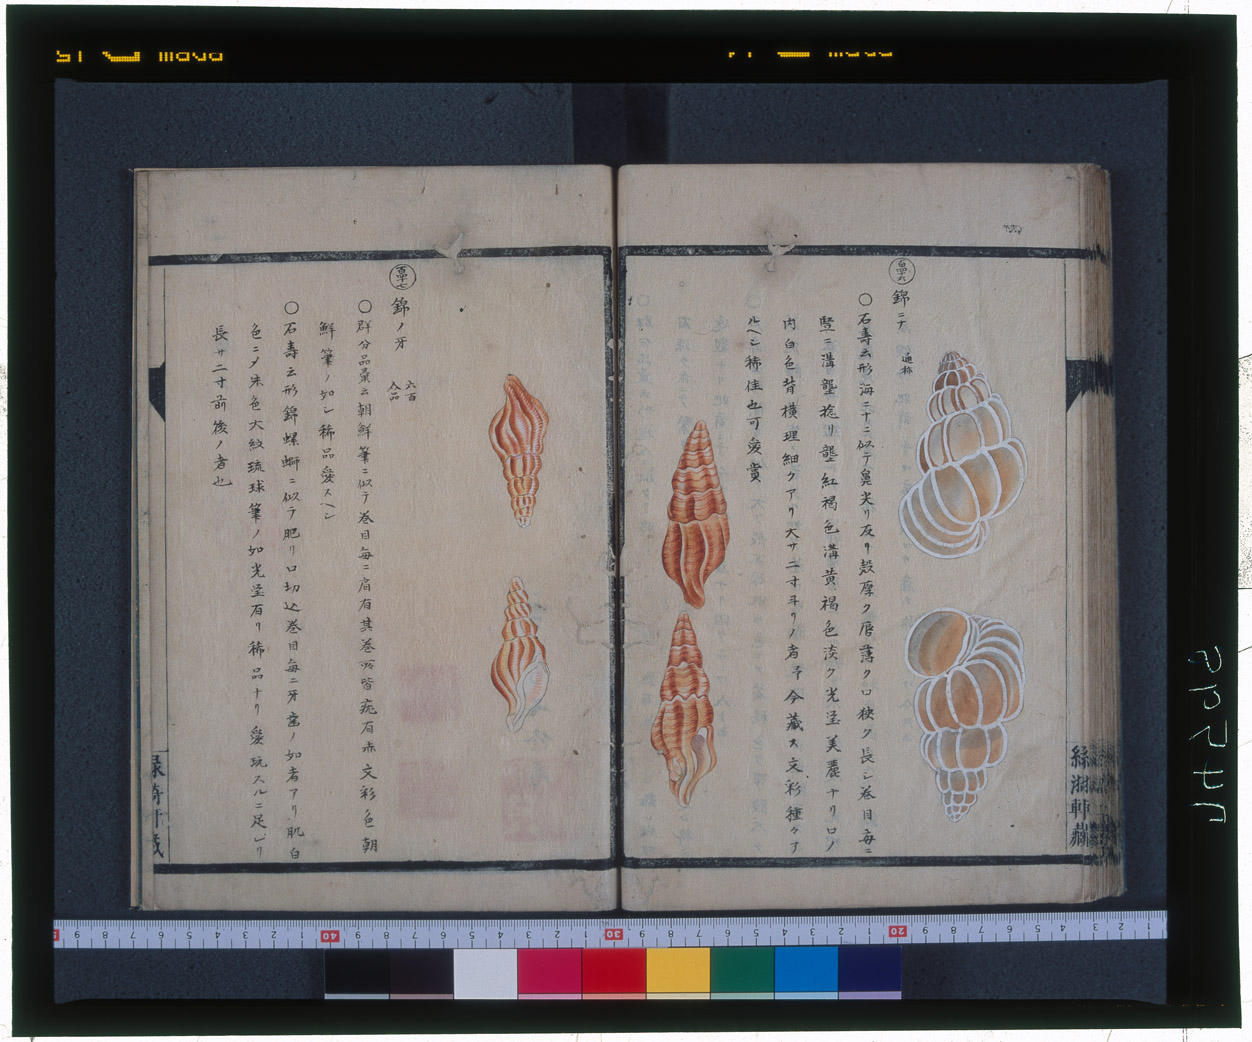 百四十六
錦ニナ 通称
〇石壽云形海ニナニ似テ鼻尖リ反リ殻厚ク唇薄ク口狭ク長シ巻目毎ニ
竪ニ溝壟捻リ壟紅褐色溝黄褐色淡ク光瑩美麗ナリ口ノ
内白色背横理細クアリ大サ二寸斗リノ者予今蔵ス文彩種々ナ
ルヘシ稀佳也可愛賞
百四十七
錦ノ牙 六百 八品
〇群分品彙云朝鮮筆ニ似テ巻目毎ニ肩有其巻
皆疣有赤文彩色朝
鮮筆ノ如シ稀品愛スヘシ
〇石壽云形錦螺螄ニ似テ肥リ口切込巻目毎ニ牙歯ノ如者アリ肌白
色ニ〆朱色大紋琉球筆ノ如光瑩有リ稀品ナリ愛玩スルニ足レリ
長サ二寸前後ノ者也